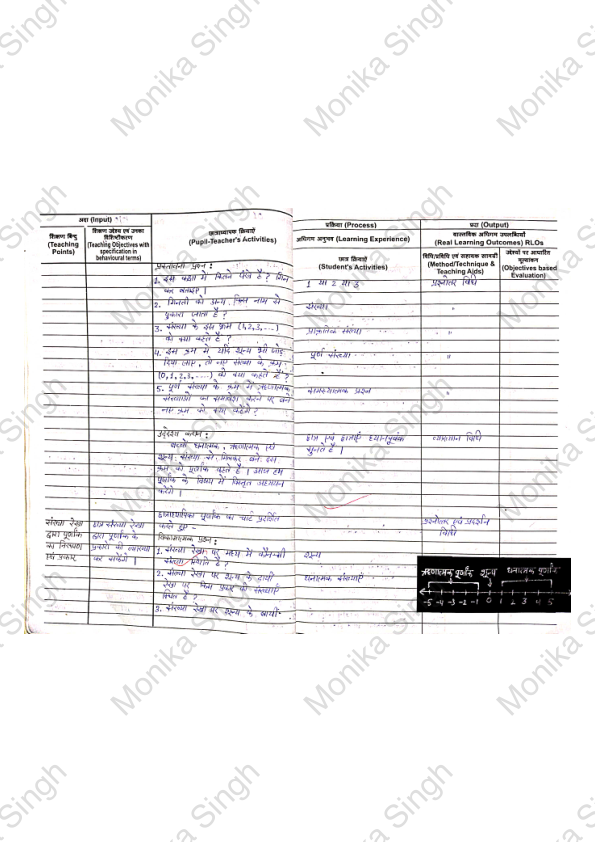 Monika Singh
अदा (Input)
प्रक्रिया (Process)
प्रदा (Output)
शिक्षण बिन्दु
(Teaching
Points)
शिक्षण उद्देश्य एवं उनका
विशिष्टीकरण
(Teaching Objectives with
specification in
behavioural terms)
छात्राध्यापक क्रियाएँ
(Pupil-Teacher's Activities)
अधिगम अनुभव (Learning Experience)
छात्र क्रियाएँ
(Student's Activities)
वास्तविक अधिगम उपलब्धियाँ
(Real Learning Outcomes) RLOs
विधि/प्रविधि एवं सहायक सामग्री
(Method/Technique &
Teaching Aids)
उद्देश्यों पर आधारित
मूल्यांकन
(Objectives based
Evaluation)
प्रस्तावना प्रश्न :
1. इस बस्ते में कितने पेन है ? गिन
कर बताइए।
1 या 2 या 3
प्रश्नोत्तर विधि
2. गिनती को अन्य किस नाम से
पुकारा जाता है ?
संख्या
"
3. संख्या के इस क्रम (1,2,3,...)
को क्या कहते हैं ?
प्राकृतिक संख्या
"
4. इस क्रम में यदि शून्य भी जोड़
दिया जाए, तो नए संख्या के क्रम
(0,1,2,3,....) को क्या कहते हैं ?
पूर्ण संख्या
"
5. पूर्ण संख्या के क्रम में ऋणात्मक
संख्याओं का समावेश करने पर बने
नए क्रम को क्या कहेंगे ?
समस्यात्मक प्रश्न
"
उद्देश्य कथन :
बच्चों धनात्मक, ऋणात्मक एवं
शून्य संख्या से मिलकर बने इस
क्रम को पूर्णांक कहते हैं। आज हम
पूर्णांक के विषय में विस्तृत अध्ययन
करेंगे।
छात्र एवं छात्राएँ ध्यानपूर्वक
सुनते हैं।
व्याख्यान विधि
संख्या रेखा
द्वारा पूर्णांक
का निरूपण
एवं प्रकार
छात्र संख्या रेखा
द्वारा पूर्णांक के
प्रकारों की व्याख्या
कर पायेंगे।
छात्राध्यापिका पूर्णांक का चार्ट प्रदर्शित
करते हुए -
प्रश्नोत्तर एवं प्रदर्शन
विधि
विकासात्मक प्रश्न :
1. संख्या रेखा पर मध्य में कौन-सी
संख्या स्थित है ?
शून्य
2. संख्या रेखा पर शून्य के दायीं
रेखा पर किस प्रकार की संख्याएँ
स्थित हैं ?
धनात्मक संख्याएँ
3. संख्या रेखा पर शून्य के बायीं
ऋणात्मक पूर्णांक शून्य धनात्मक पूर्णांक
-5 -4 -3 -2 -1 0 1 2 3 4 5